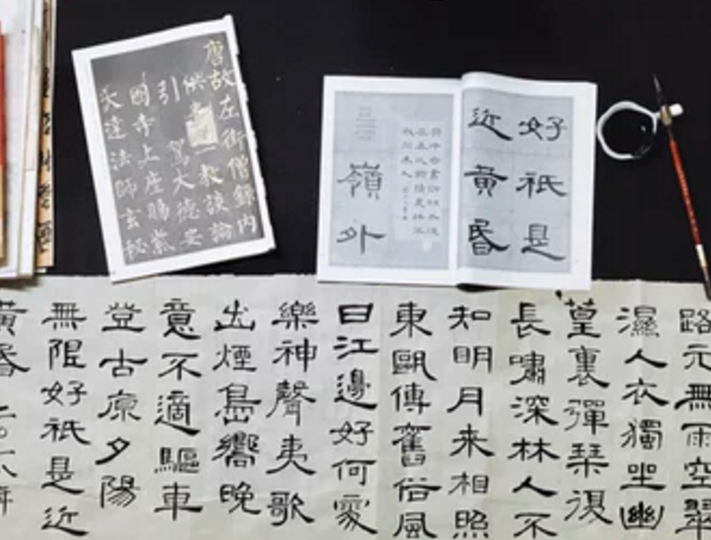 唐故左街僧錄内
供奉三教談論
引駕大德安
國寺上座賜紫
大達法師玄秘
好祇是
近黄昏
嶺外
路元無雨空翠
濕人衣獨坐幽
篁裏彈琴復
長嘯深林人不
知明月来相照
東甌傳舊俗風
日江邊好何處
樂神聲夷歌
出煙島嚮晚
意不適驅車
登古原夕陽
無限好祇是近
黄昏 二〇一八年